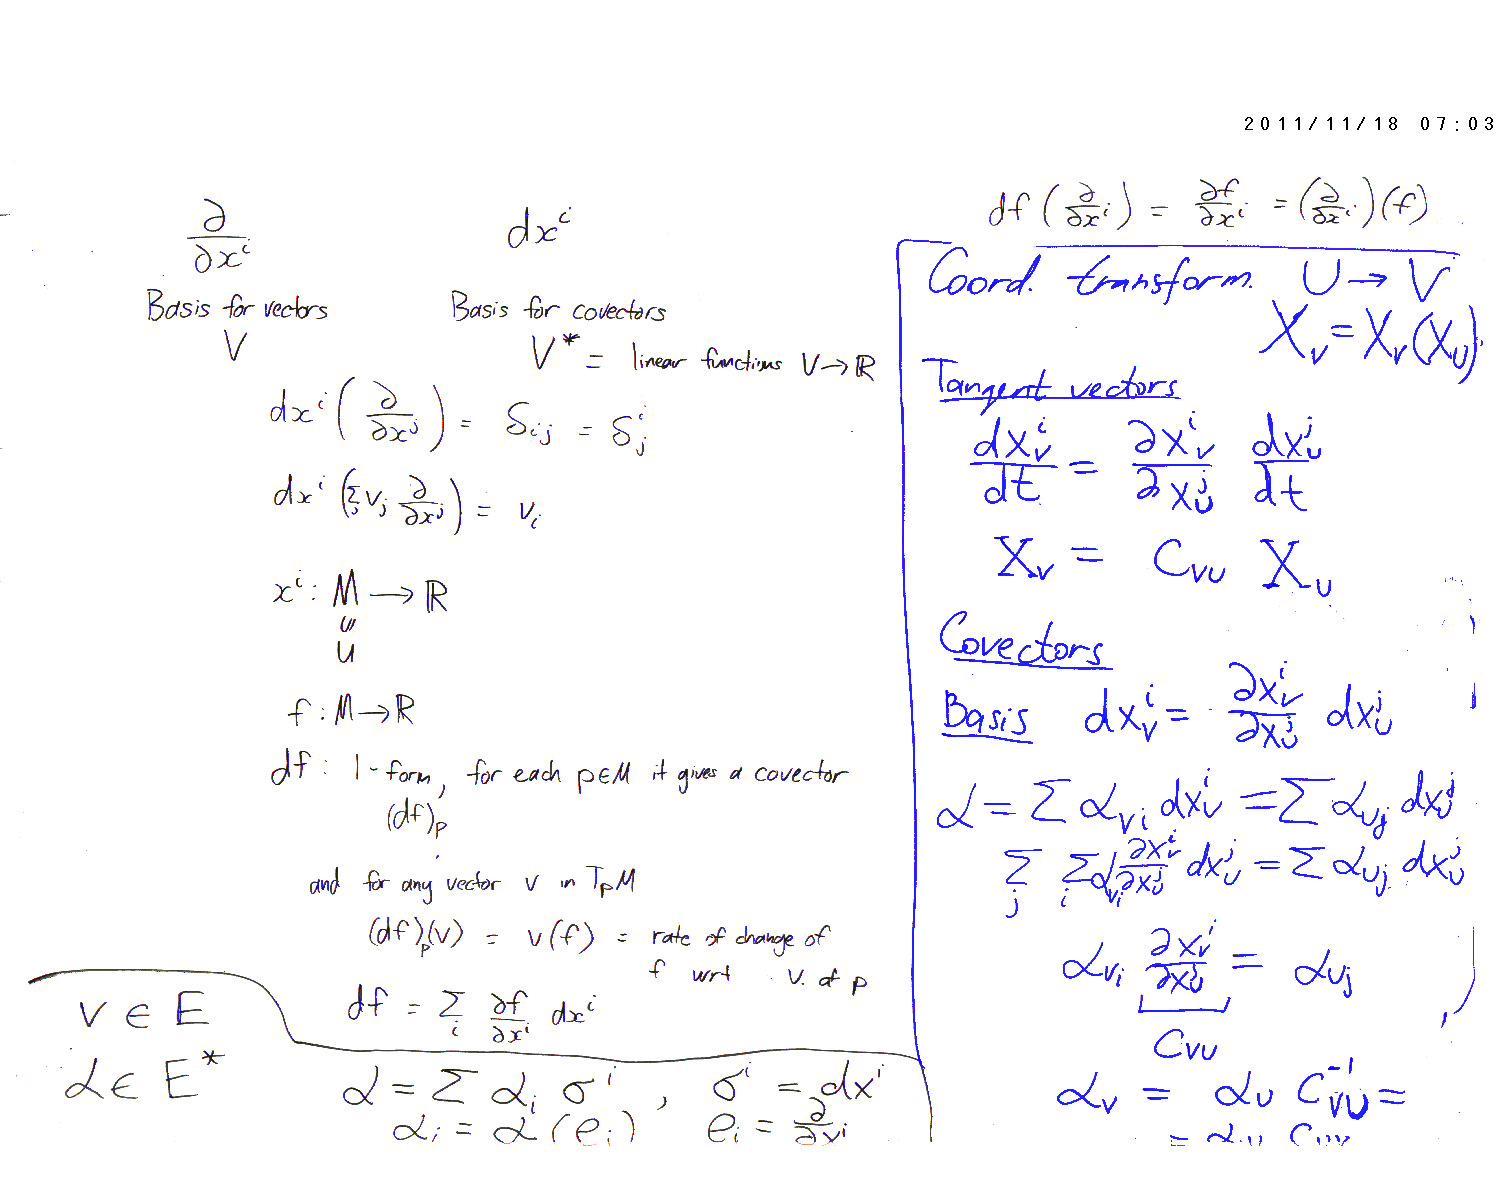 2011/11/18 07:03
∂/∂xⁱ
dxⁱ
Basis for vectors
V
Basis for covectors
V* = linear functions V→ℝ
dxⁱ(∂/∂xʲ) = δᵢⱼ = δⁱⱼ
dxⁱ(Σⱼ vⱼ ∂/∂xʲ) = vᵢ
xⁱ : M → ℝ
U
f : M→ℝ
df : 1-form, for each p∈M it gives a covector
(df)ₚ
and for any vector v in TₚM
(df)ₚ(v) = v(f) = rate of change of
f wrt v. at p
df = Σᵢ ∂f/∂xⁱ dxⁱ
v ∈ E
α ∈ E*
α = Σ αᵢ σⁱ , σⁱ = dxⁱ
αᵢ = α(eᵢ) eᵢ = ∂/∂xⁱ
df(∂/∂xⁱ) = ∂f/∂xⁱ = (∂/∂xⁱ)(f)
Coord. transform. U → V
X_V = X_V(X_U).
Tangent vectors
dx_Vⁱ/dt = ∂x_Vⁱ/∂x_Uʲ dx_Uʲ/dt
X_V = C_VU X_U
Covectors
Basis dx_Vⁱ = ∂x_Vⁱ/∂x_Uʲ dx_Uʲ
α = Σ α_Vi dx_Vⁱ = Σ α_Uj dx_Uʲ
Σⱼ Σᵢ α_Vi ∂x_Vⁱ/∂x_Uʲ dx_Uʲ = Σ α_Uj dx_Uʲ
α_Vi ∂x_Vⁱ/∂x_Uʲ = α_Uj
C_VU
α_V = α_U C_VU⁻¹ =
= α_U C_UV